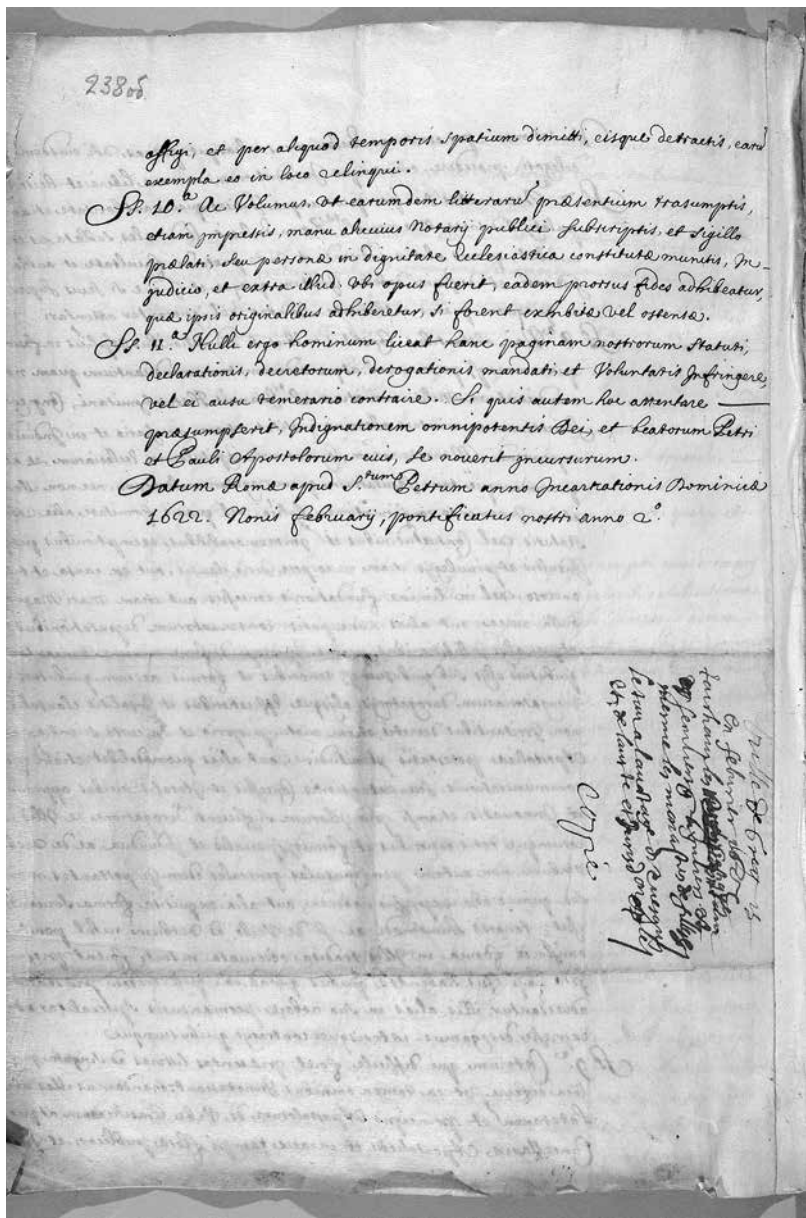 238 ob
affigi, et per aliquod temporis spatium dimitti, eisque detractis, earū
exempla eo in loco relinqui.
Ss. 10.ª Ac Volumus, Vt earumdem litterarū præsentium trasumptis,
etiam jmpressis, manu alicuius Notarij publici subscriptis, et sigillo
prælati, seu personæ in dignitate Ecclesiastica constitutæ munitis, jn
judicio, et extra illud. Vbi opus fuerit, eadem prorsus fides adhibeatur,
quæ ipsis originalibus adhiberetur, si forent exhibitæ vel ostensæ.
Ss. 11ª Nulli ergo hominum liceat hanc paginam nostrorum statuti,
declarationis, decretorum, derogationis mandati, et Voluntatis jnfringere,
vel ei ausu temerario contraire. Si quis autem hoc attentare
præsumpserit, jndignationem omnipotentis Dei, et beatorum Petri
et Pauli Apostolorum eius, se noverit jncursurum.
Datum Romæ apud S.tum Petrum anno jncarnationis Dominicæ
1622. Nonis februarij, pontificatus nostri anno 2º.
bulle de Greg 15
en febvrier
touchant les
reguliers et
mesme les monasteres de filles
copie